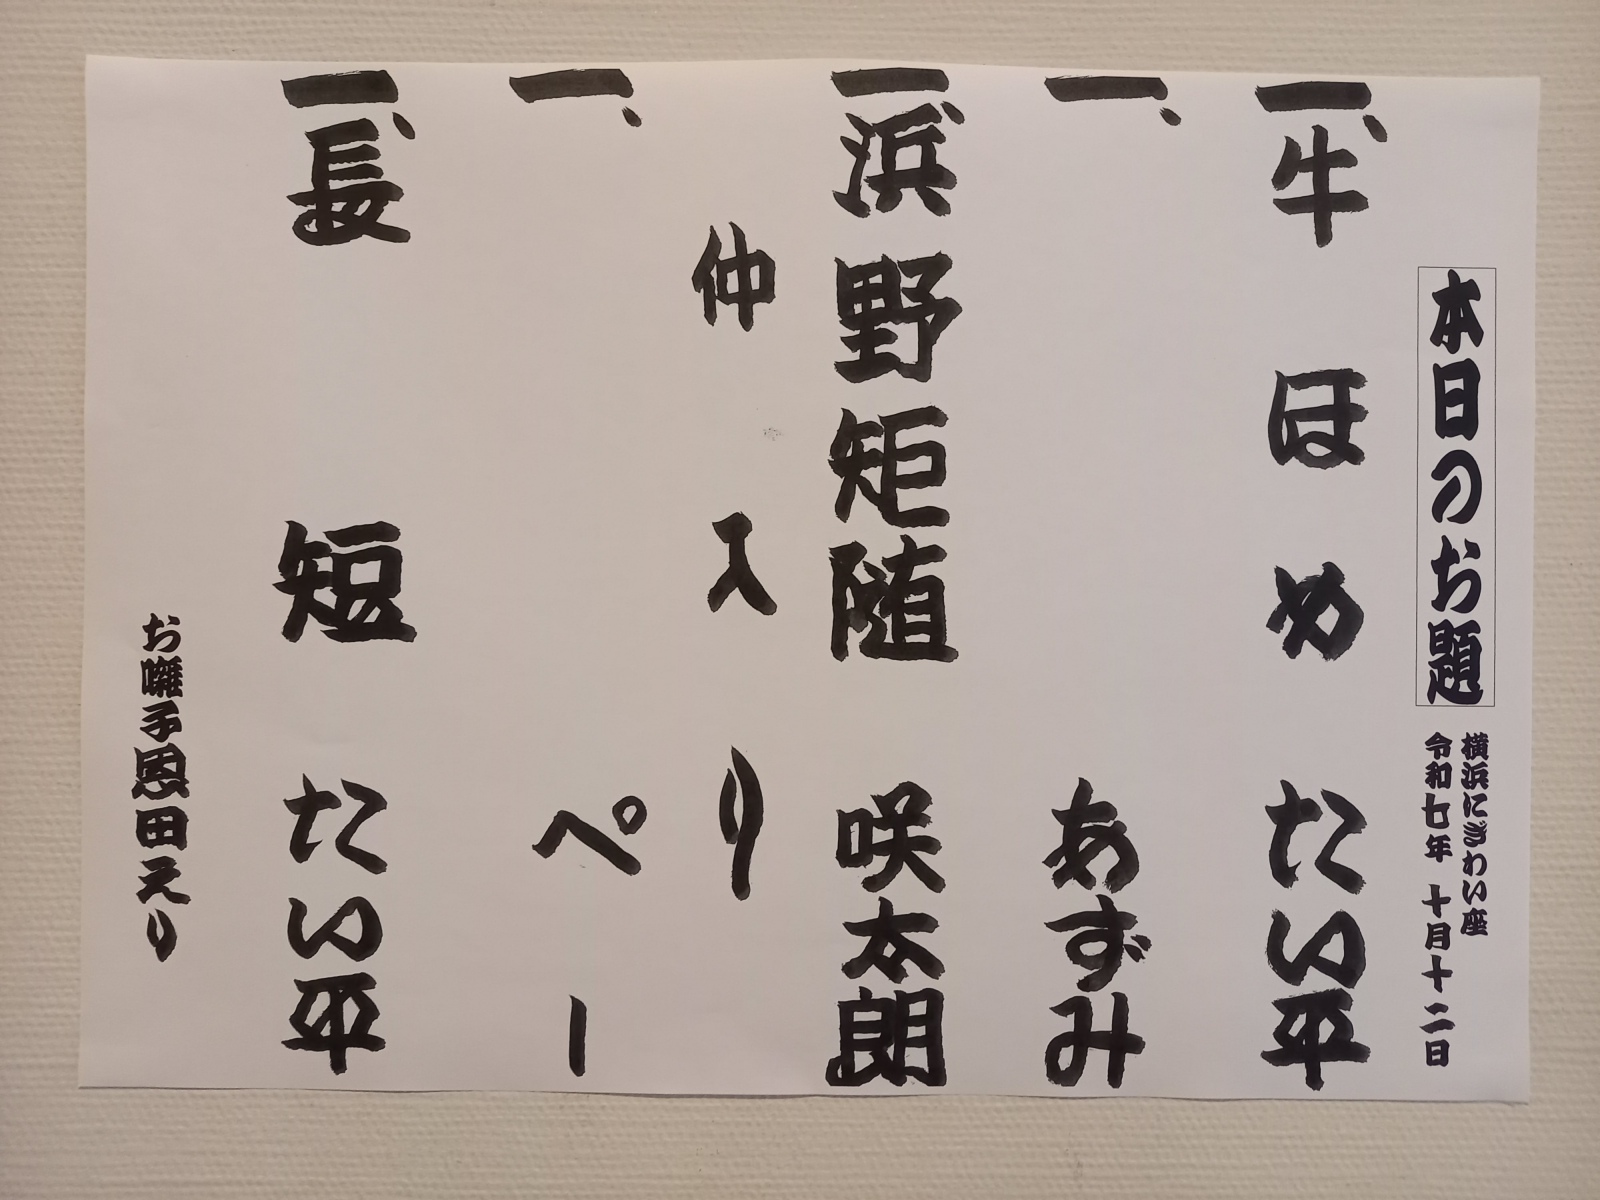 本日のお題
横浜にぎわい座
令和七年 十月十二日
一、牛ほめ たい平
一、 あずみ
一、浜野矩随 咲太朗
仲入り
一、 ぺー
一、長短 たい平
お囃子恩田えり